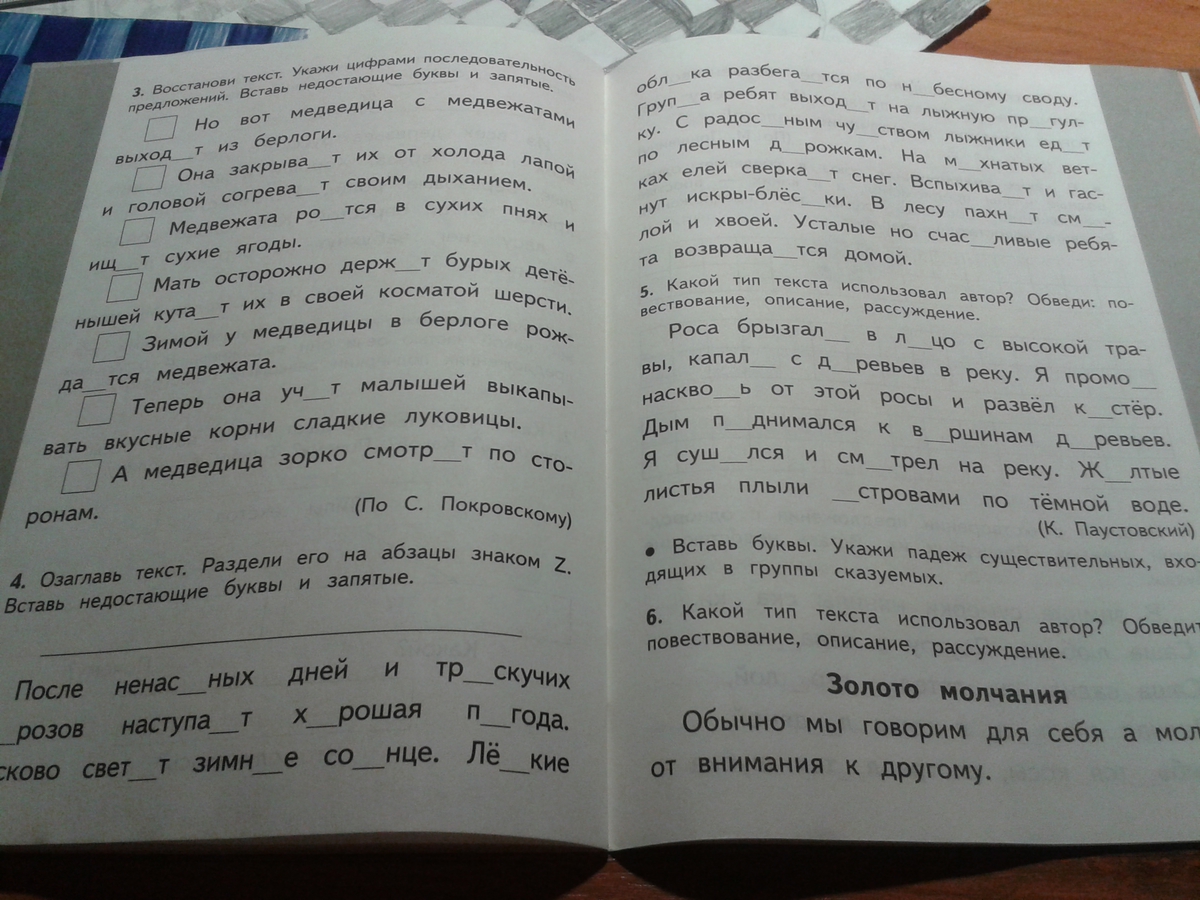 3. Восстанови текст. Укажи цифрами последовательность
предложений. Вставь недостающие буквы и запятые.
Но вот медведица с медвежатами
выход__т из берлоги.
Она закрыва__т их от холода лапой
и головой согрева__т своим дыханием.
Медвежата ро__тся в сухих пнях и
ищ__т сухие ягоды.
Мать осторожно держ__т бурых детё-
нышей кута__т их в своей косматой шерсти.
Зимой у медведицы в берлоге рож-
да__тся медвежата.
Теперь она уч__т малышей выкапы-
вать вкусные корни сладкие луковицы.
А медведица зорко смотр__т по сто-
ронам.
(По С. Покровскому)
4. Озаглавь текст. Раздели его на абзацы знаком Z.
Вставь недостающие буквы и запятые.
После ненас__ных дней и тр__скучих
__розов наступа__т х__рошая п__года.
сково свет__т зимн__е со__нце. Лё__кие
обл__ка разбега__тся по н__бесному своду.
Груп__а ребят выход__т на лыжную пр__гул-
ку. С радос__ным чу__ством лыжники ед__т
по лесным д__рожкам. На м__хнатых вет-
ках елей сверка__т снег. Вспыхива__т и гас-
нут искры-блёс__ки. В лесу пахн__т см__-
лой и хвоей. Усталые но счас__ливые ребя-
та возвраща__тся домой.
5. Какой тип текста использовал автор? Обведи: по-
вествование, описание, рассуждение.
Роса брызгал__ в л__цо с высокой тра-
вы, капал__ с д__ревьев в реку. Я промо__
наскво__ь от этой росы и развёл к__стёр.
Дым п__днимался к в__ршинам д__ревьев.
Я суш__лся и см__трел на реку. Ж__лтые
листья плыли __стровами по тёмной воде.
(К. Паустовский)
• Вставь буквы. Укажи падеж существительных, вхо-
дящих в группы сказуемых.
6. Какой тип текста использовал автор? Обведит
повествование, описание, рассуждение.
Золото молчания
Обычно мы говорим для себя а мол
от внимания к другому.